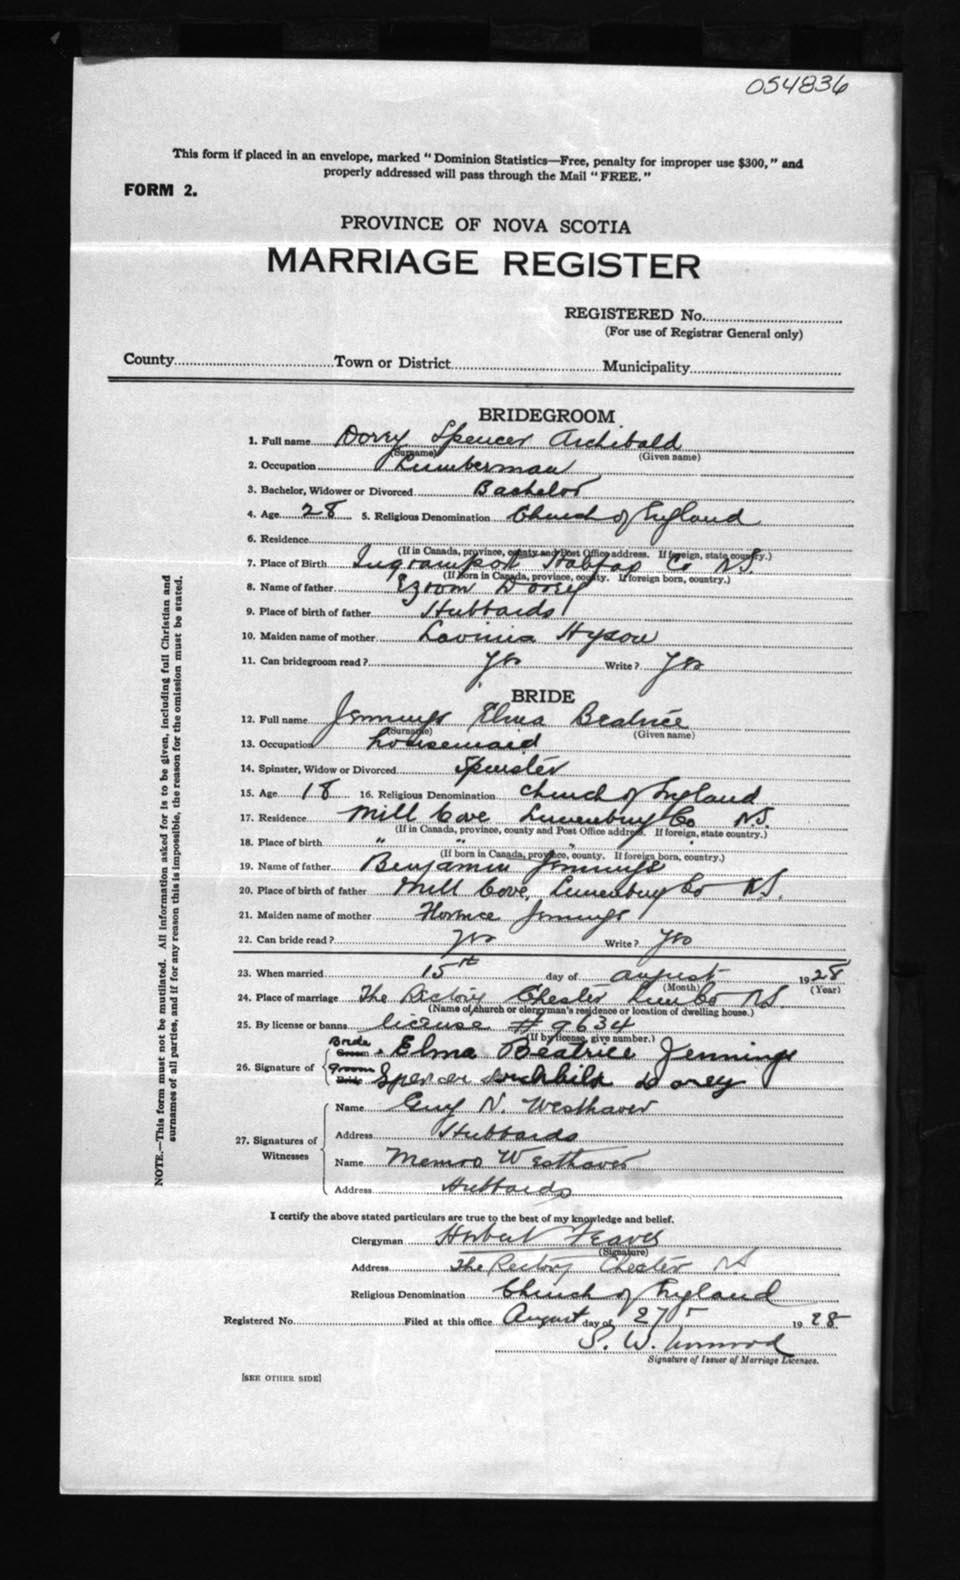 054836
This form if placed in an envelope, marked "Dominion Statistics—Free, penalty for improper use $300," and
properly addressed will pass through the Mail "FREE."
FORM 2.
PROVINCE OF NOVA SCOTIA
MARRIAGE REGISTER
REGISTERED No.
(For use of Registrar General only)
County Town or District Municipality
BRIDEGROOM
1. Full name Dorey Spencer Archibald
(Surname) (Given name)
2. Occupation Lumberman
3. Bachelor, Widower or Divorced Bachelor
4. Age 28 5. Religious Denomination Church of England
6. Residence
(If in Canada, province, county and Post Office address. If foreign, state country.)
7. Place of Birth Ingramport Halifax Co N.S.
(If born in Canada, province, county. If foreign born, country.)
8. Name of father Ezrom Dorey
9. Place of birth of father Hubbards
10. Maiden name of mother Lavinia Hyson
11. Can bridegroom read? Yes Write? Yes
BRIDE
12. Full name Jennings Elma Beatrice
(Surname) (Given name)
13. Occupation housemaid
14. Spinster, Widow or Divorced Spinster
15. Age 18 16. Religious Denomination Church of England
17. Residence Mill Cove Lunenburg Co N.S.
(If in Canada, province, county and Post Office address. If foreign, state country.)
18. Place of birth " " "
(If born in Canada, province, county. If foreign born, country.)
19. Name of father Benjamin Jennings
20. Place of birth of father Mill Cove, Lunenburg Co N.S.
21. Maiden name of mother Florence Jennings
22. Can bride read? Yes Write? Yes
23. When married 15th day of August 1928
(Month) (Year)
24. Place of marriage The Rectory Chester Lun Co N.S.
(Name of church or clergyman's residence or location of dwelling house.)
25. By license or banns license # 9634
(If by license, give number.)
Bride
Groom Elma Beatrice Jennings
26. Signature of
Groom
Bride Spencer Archbild Dorey
Name Guy N. Westhaver
27. Signatures of Witnesses
Address Hubbards
Name Memro Westhaver
Address Hubbards
I certify the above stated particulars are true to the best of my knowledge and belief.
Clergyman Herbert Feaver
(Signature)
Address The Rectory Chester NS
Religious Denomination Church of England
Registered No. Filed at this office August day of 27 1928
S. W.
Signature of Issuer of Marriage Licenses.
[SEE OTHER SIDE]
NOTE.—This form must not be mutilated. All information asked for is to be given, including full Christian and
surnames of all parties, and if for any reason this is impossible, the reason for the omission must be stated.